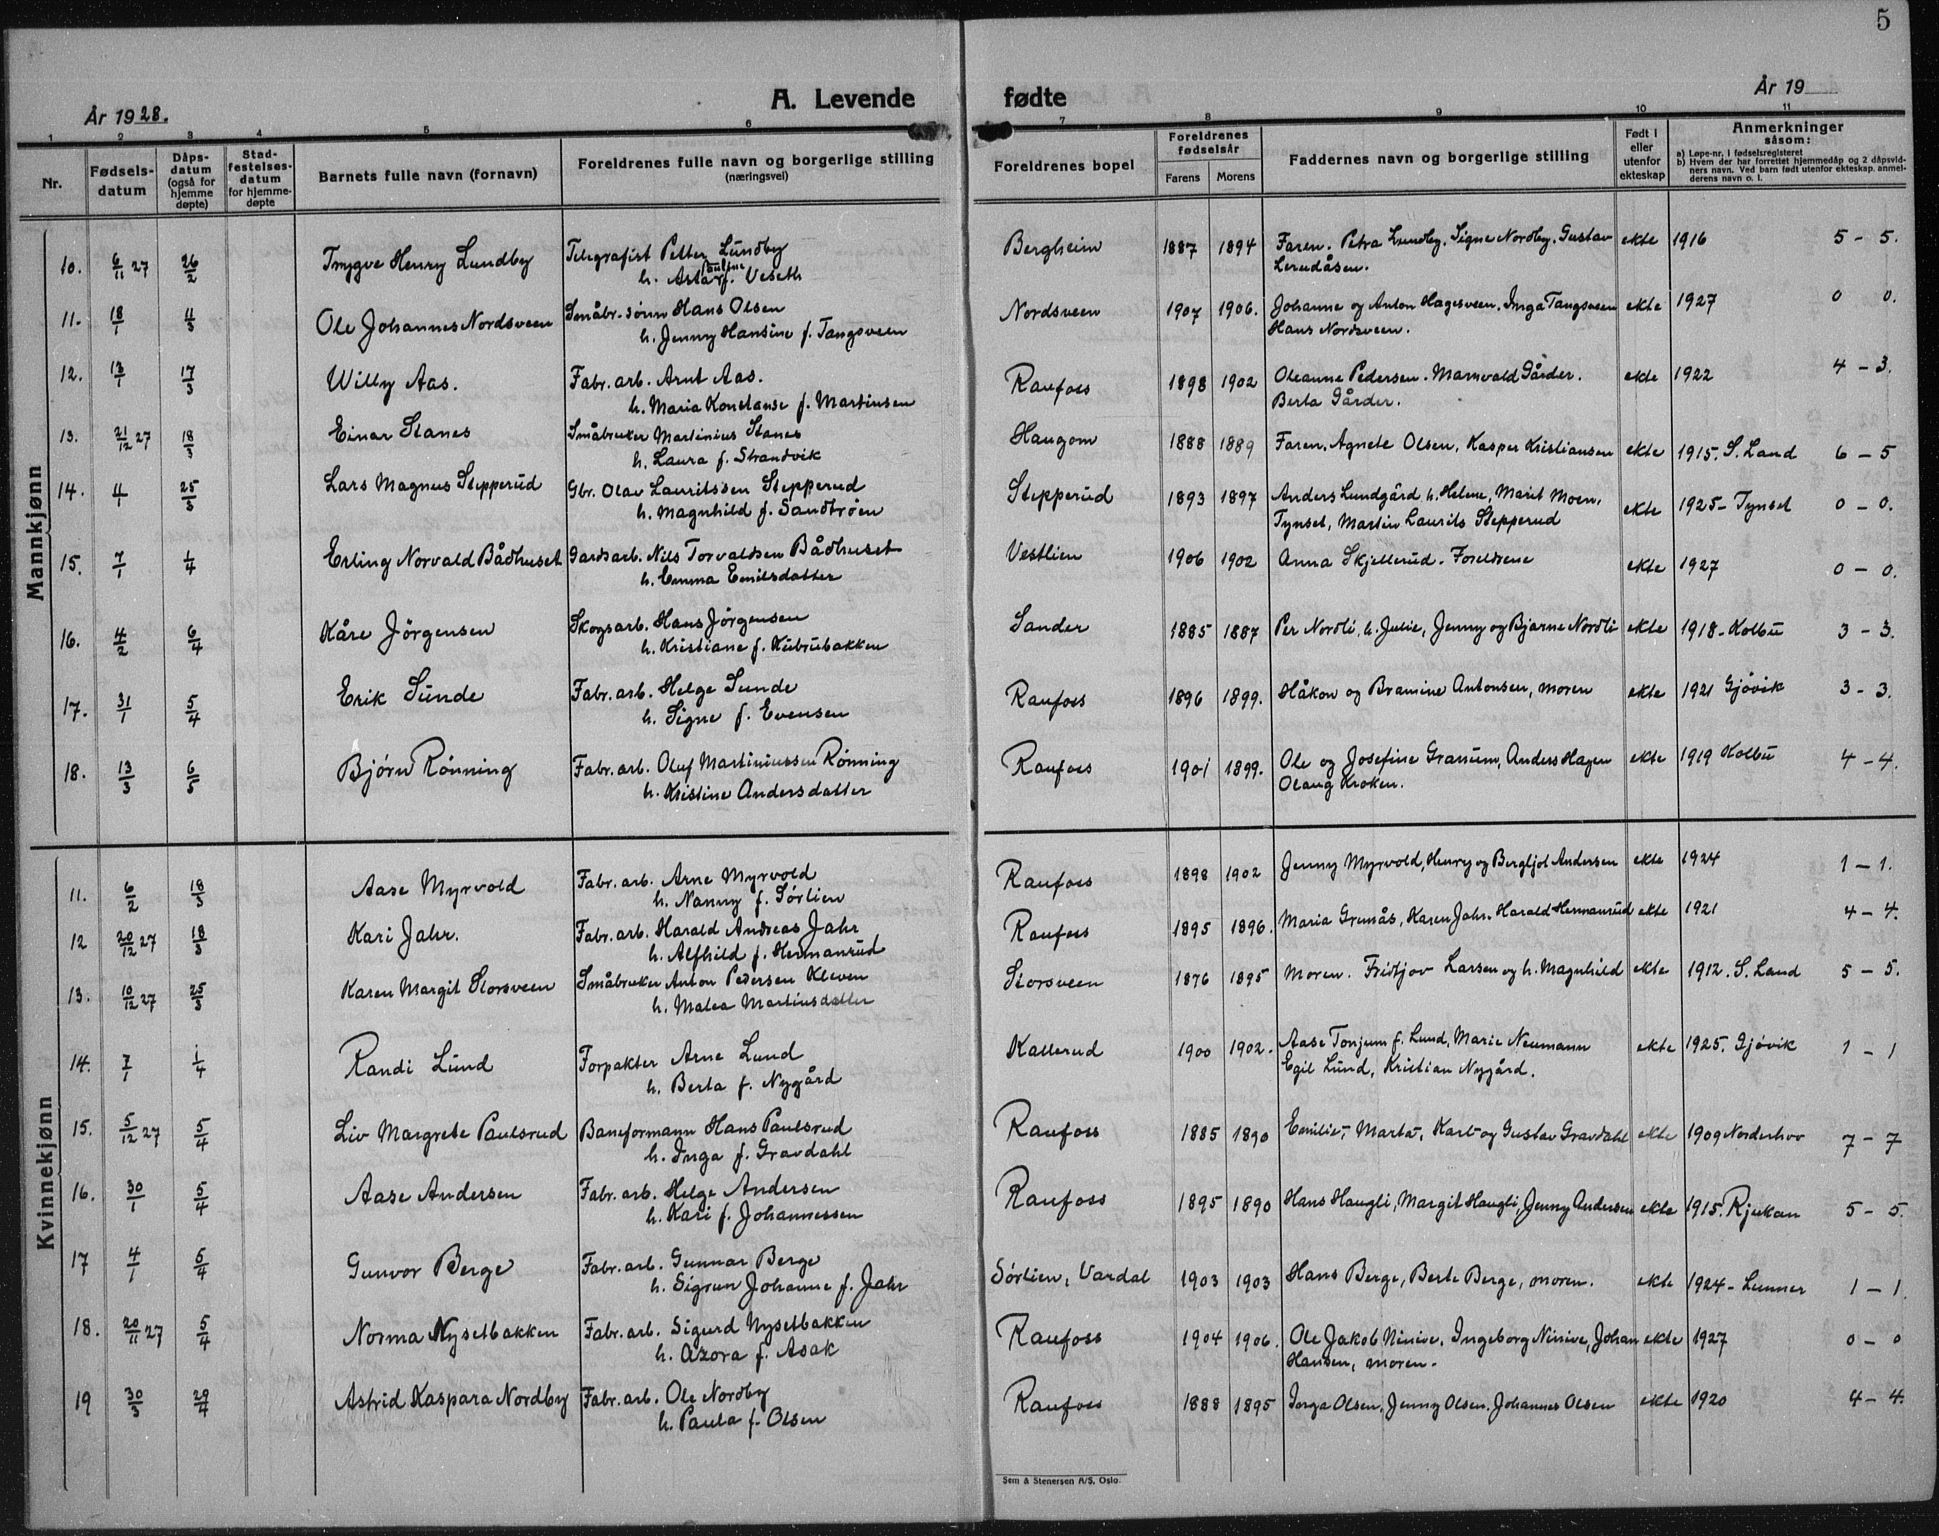 5
År 1928.
A. Levende
fødte
År 19
1 2 3 4 5 6 7 8 9 10 11
Nr.
Fødsels-
datum
Dåps-
datum
(også for
hjemme
døpte)
Stad-
festelses-
datum
for hjemme-
døpte
Barnets fulle navn (fornavn)
Foreldrenes fulle navn og borgerlige stilling
(næringsvei)
Foreldrenes bopel
Foreldrenes
fødselsår
Farens Morens
Faddernes navn og borgerlige stilling
Født i
eller
utenfor
ekteskap
Anmerkninger
såsom:
a) Løpe-nr. i fødselsregisteret
b) Hvem der har forrettet hjemmedåp og 2 dåpsvid-
ners navn. Ved barn født utenfor ekteskap, anmel-
derens navn o. l.
Mannkjønn
10. 6/11 27 26/2 Trygve Henry Lundby Telegrafist Petter Lundby Bergheim 1887 1894 Faren. Petra Lundby. Signe Nordby. Gustav ekte 1916 5 - 5.
h. Asta Pauline f. Veseth Lerudåsen.
11. 18/1 11/3 Ole Johannes Nordsveen Småbr. sønn Hans Olsen Nordsveen 1907 1906. Johanne og Anton Hagesveen, Inga Tangsveen ekte 1927 0 0.
h. Jenny Hansine f. Tangsveen Hans Nordsveen.
12. 13/1 17/3 Willy Aas. Fabr. arb. Arnt Aas. Raufoss 1898 1902 Oleanne Pedersen. Marnvald Gårder. ekte 1922 4 - 3.
h. Maria Konstanse f. Martinsen Berta Gårder.
13. 21/12 27 18/3 Einar Stanes Småbruker Martinius Stanes Haugom 1888 1889 Faren, Agnete Olsen, Kasper Kristiansen ekte 1915. S. Land 6 - 5
h. Laura f. Strandvik
14. 4/1 25/3 Lars Magnus Stepperud Gbr. Olav Lauritssen Stepperud Stepperud 1893 1897 Anders Lundgård h. Helene, Marit Moen, ekte 1925 - Tynset 0 - 0.
h. Magnhild f. Sandtrøen Tynset, Martin Laurits Stepperud
15. 7/1 1/4 Erling Norvald Bådhuset Gardsarb. Nils Torvaldsen Bådhuset Vestlien 1906 1902 Anna Skjellerud. Foreldrene ekte 1927 0 - 0.
h. Emma Emilsdatter
16. 4/2 6/4 Kåre Jörgensen Skogsarb. Hans Jørgensen Sander 1885 1887 Per Nordli, h. Julie, Jenny og Bjarne Nordli ekte 1918 - Kolbu 3 - 3.
h. Kristiane f. Kubrubakken
17. 31/1 5/4 Erik Sunde Fabr. arb. Helge Sunde Raufoss 1896 1899. Håkon og Bramine Antonsen, moren ekte 1921 Gjøvik 3 - 3.
h. Signe f. Evensen
18. 13/3 6/5 Bjørn Rønning Fabr. arb. Oluf Martiniussen Rønning Raufoss 1901 1899. Ole og Josefine Granum, Anders Hagen ekte 1919 Kolbu 4 - 4.
h. Kristine Andersdatter Olaug Kroken.
Kvinnekjønn
11. 6/2 18/3 Aase Myrvold Fabr. arb. Arne Myrvold Raufoss 1898 1902 Jenny Myrvold, Henry og Bergljot Andersen ekte 1924 1 - 1.
h. Nanny f. Sørlien
12 20/12 27 18/3 Kari Jahr. Fabr. arb. Harald Andreas Jahr Raufoss 1895 1896. Maria Grenås, Karen Jahr. Harald Hermanrud ekte 1921 4 - 4.
h. Alfhild f. Hermanrud
13. 10/12 27 25/3 Karen Margit Storsveen Småbruker Anton Pedersen Kleven Storsveen 1876 1895 Moren. Fridtjov Larsen og h. Magnhild ekte 1912. S. Land 5 - 5.
h. Malea Martinsdatter
14. 7/1 1/4 Randi Lund Forpakter Arne Lund Kallerud 1900 1902. Aase Tonjum f. Lund, Marie Neumann ekte 1925. Gjøvik 1 - 1
h. Berta f. Nygård Egil Lund, Kristian Nygård.
15. 5/12 27 5/4 Liv Margrete Paulsrud Baneformann Hans Paulsrud Raufoss 1885 1890 Emilie-, Marta-, Karl- og Gustav Gravdahl ekte 1909 Norderhov 7 - 7
h. Inga f. Gravdahl
16. 30/1 5/4 Aase Andersen Fabr. arb. Helge Andersen Raufoss 1895 1890 Hans Haugli, Margit Haugli, Jenny Andersen ekte 1915. Rjukan 5 - 5.
h. Kari f. Johannessen
17 4/1 5/4 Gunvor Berge Fabr. arb. Gunnar Berge Sørlien, Vardal 1903 1903 Hans Berge, Berte Berge, moren. ekte 1924 - Lunner 1 - 1.
h. Sigrun Johanne f. Jahr
18. 20/11 27 5/4 Norma Nysetbakken Fabr. arb. Sigurd Nysetbakken Raufoss 1904 1906. Ole Jakob Ninive, Ingeborg Ninive, Johan ekte 1927 0 - 0
h. Azora f. Asak Hansen, moren.
19 30/3 29/4 Astrid Kaspara Nordby Fabr. arb. Ole Nordby Raufoss 1888 1895 Jorga Olsen, Jenny Olsen, Johannes Olsen ekte 1920 4 - 4.
h. Paula f. Olsen
Sem & Stenersen A/S, Oslo.